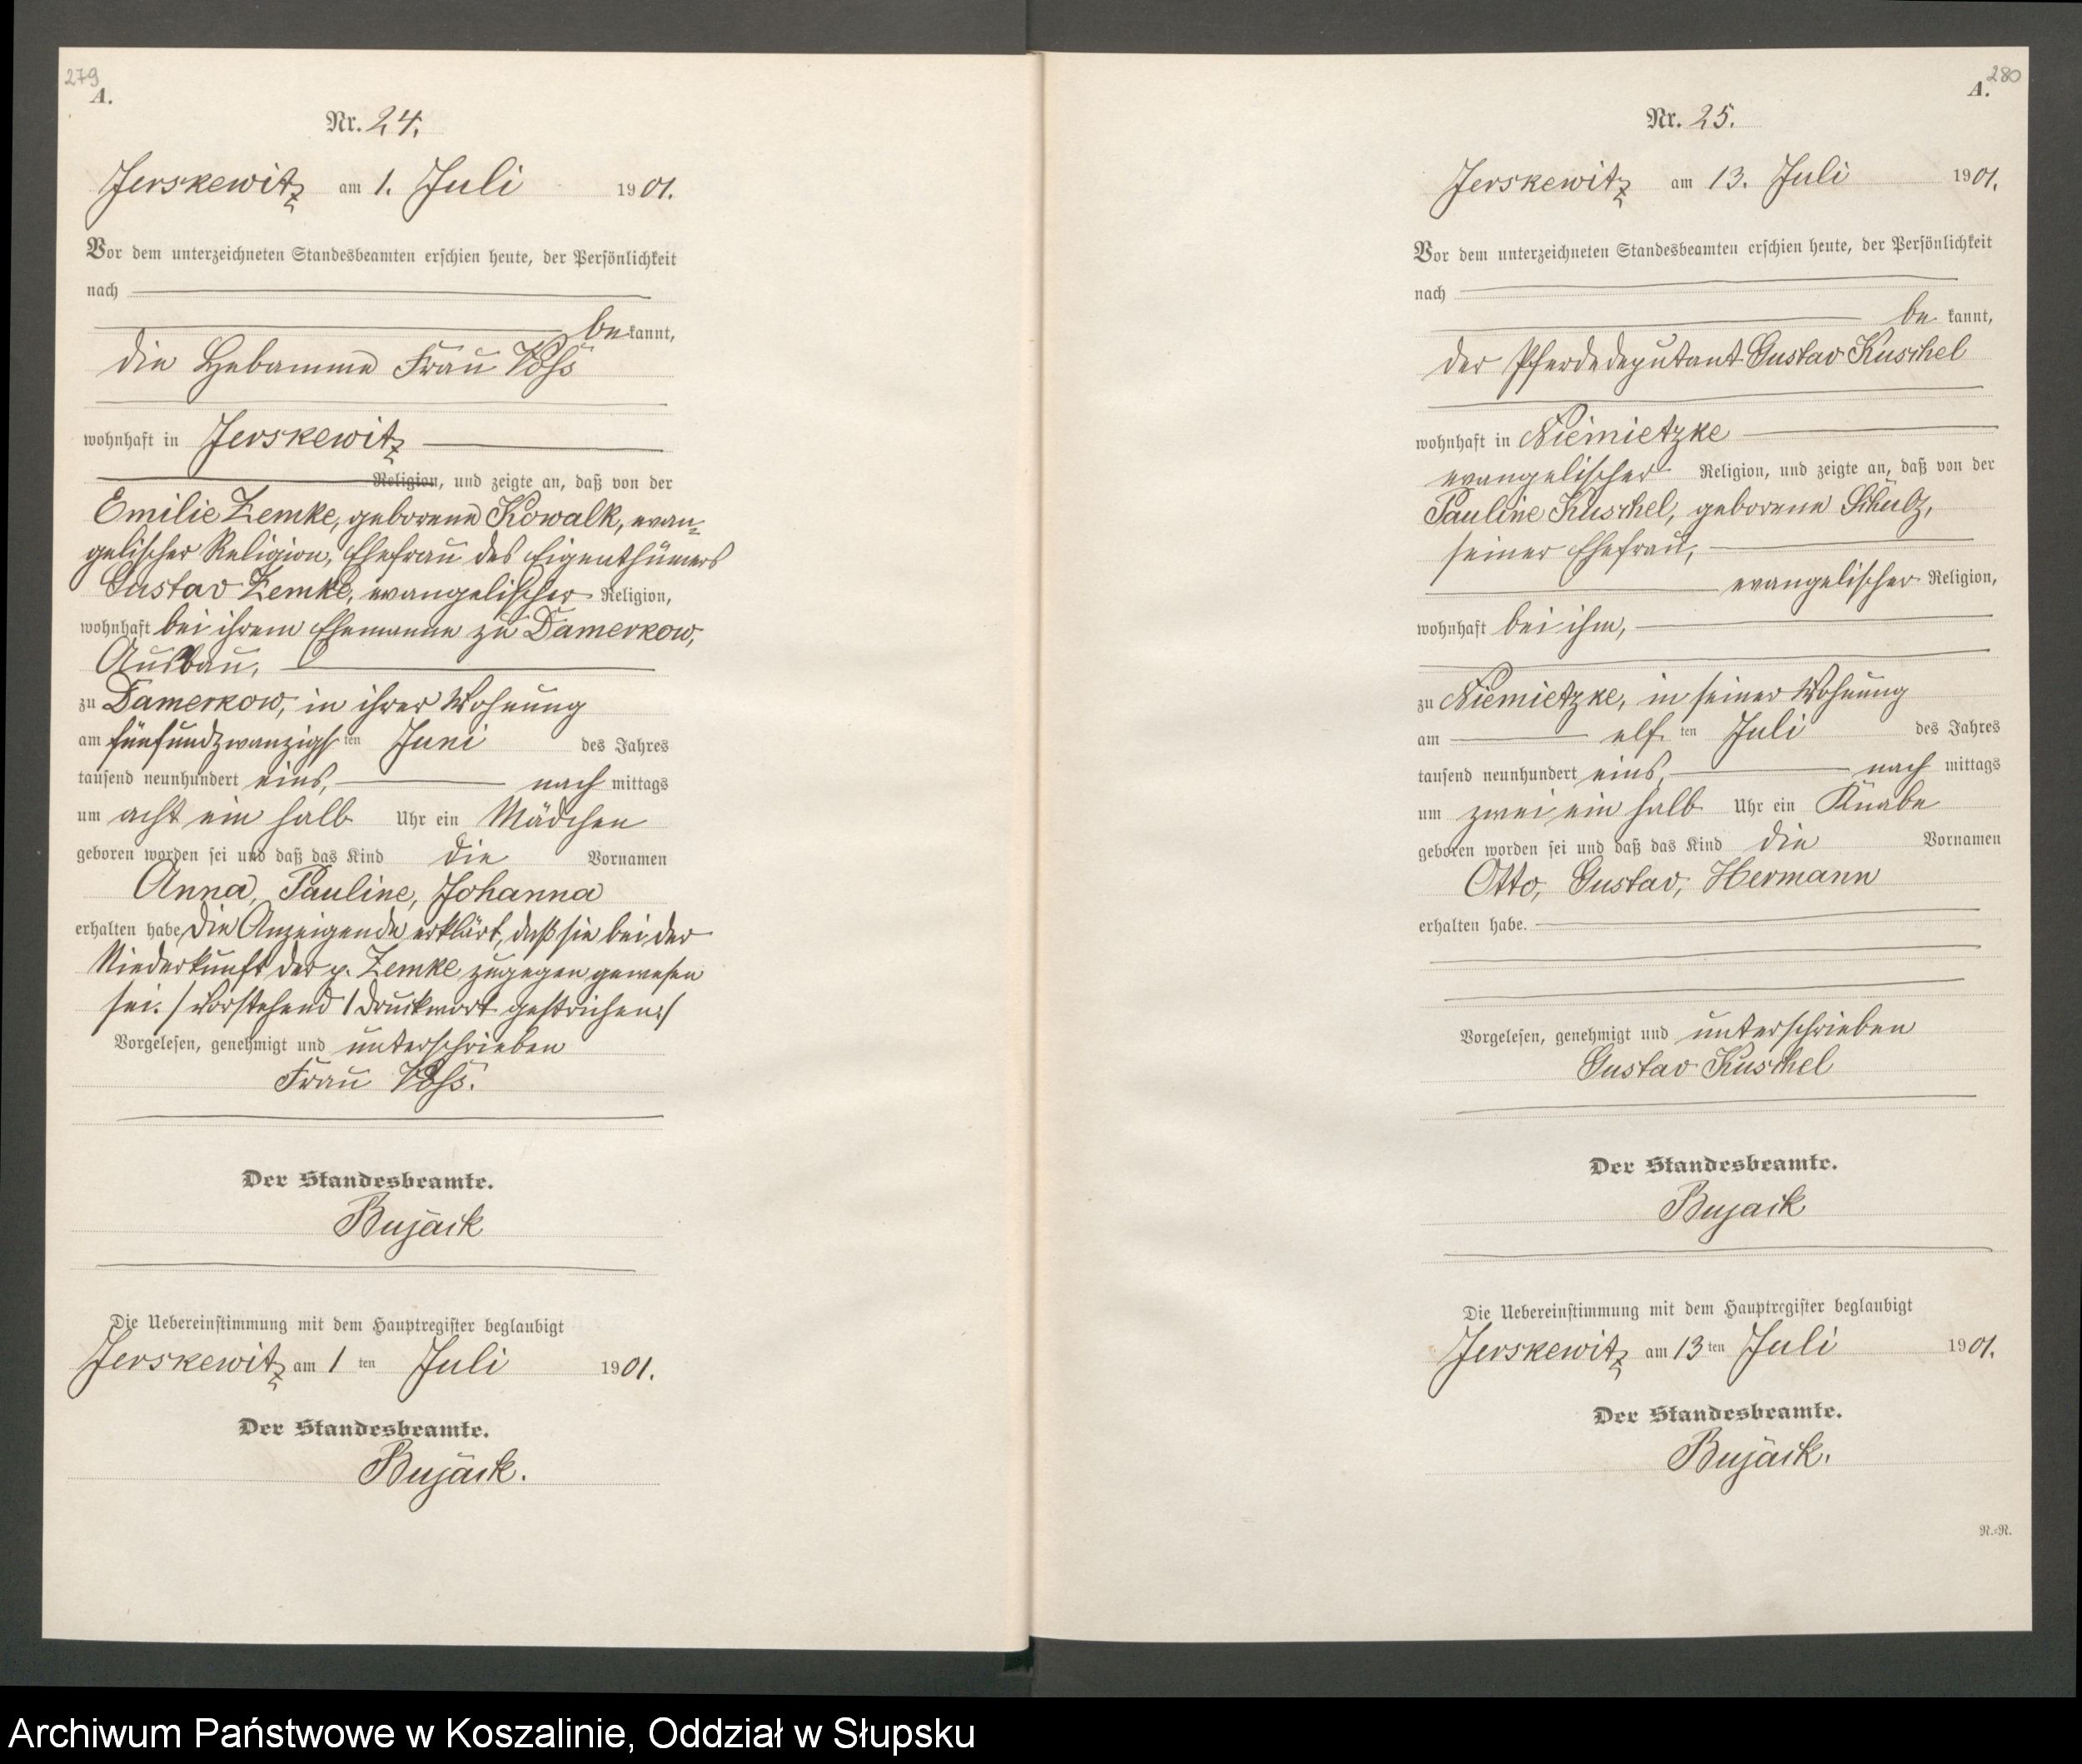 279
A.
Nr. 24.
Jerskewitz am 1. Juli 1901.
Vor dem unterzeichneten Standesbeamten erschien heute, der Persönlichkeit
nach
bekannt,
die Hebamme Frau Voss
wohnhaft in Jerskewitz
Religion, und zeigte an, daß von der
Emilie Zemke, geborene Kowalk, evan-
gelischer Religion, Ehefrau des Eigenthümers
Gustav Zemke, evangelischer Religion,
wohnhaft bei ihrem Ehemanne zu Damerkow,
Ausbau,
zu Damerkow, in ihrer Wohnung
am fünfundzwanzigsten Juni des Jahres
tausend neunhundert eins, nachmittags
um acht ein halb Uhr ein Mädchen
geboren worden sei und daß das Kind die Vornamen
Anna, Pauline, Johanna
erhalten habe, die Anzeigende erklärt, daß sie bei der
Niederkunft der p. Zemke zugegen gewesen
sei. / Vorstehend 1 Druckwort gestrichen. /
Vorgelesen, genehmigt und unterschrieben
Frau Voss.
Der Standesbeamte.
Bujack
Die Uebereinstimmung mit dem Hauptregister beglaubigt
Jerskewitz am 1ten Juli 1901.
Der Standesbeamte.
Bujack.
280
A.
Nr. 25.
Jerskewitz am 13. Juli 1901.
Vor dem unterzeichneten Standesbeamten erschien heute, der Persönlichkeit
nach
be kannt,
der Pferdedeputant Gustav Kuschel
wohnhaft in Niemietzke
evangelischer Religion, und zeigte an, daß von der
Pauline Kuschel, geborene Schulz,
seiner Ehefrau,
evangelischer Religion,
wohnhaft bei ihm,
zu Niemietzke, in seiner Wohnung
am elften Juli des Jahres
tausend neunhundert eins, nachmittags
um zwei ein halb Uhr ein Knabe
geboren worden sei und daß das Kind die Vornamen
Otto, Gustav, Hermann
erhalten habe.
Vorgelesen, genehmigt und unterschrieben
Gustav Kuschel
Der Standesbeamte.
Bujack
Die Uebereinstimmung mit dem Hauptregister beglaubigt
Jerskewitz am 13ten Juli 1901.
Der Standesbeamte.
Bujack.
N.=N.
Archiwum Państwowe w Koszalinie, Oddział w Słupsku